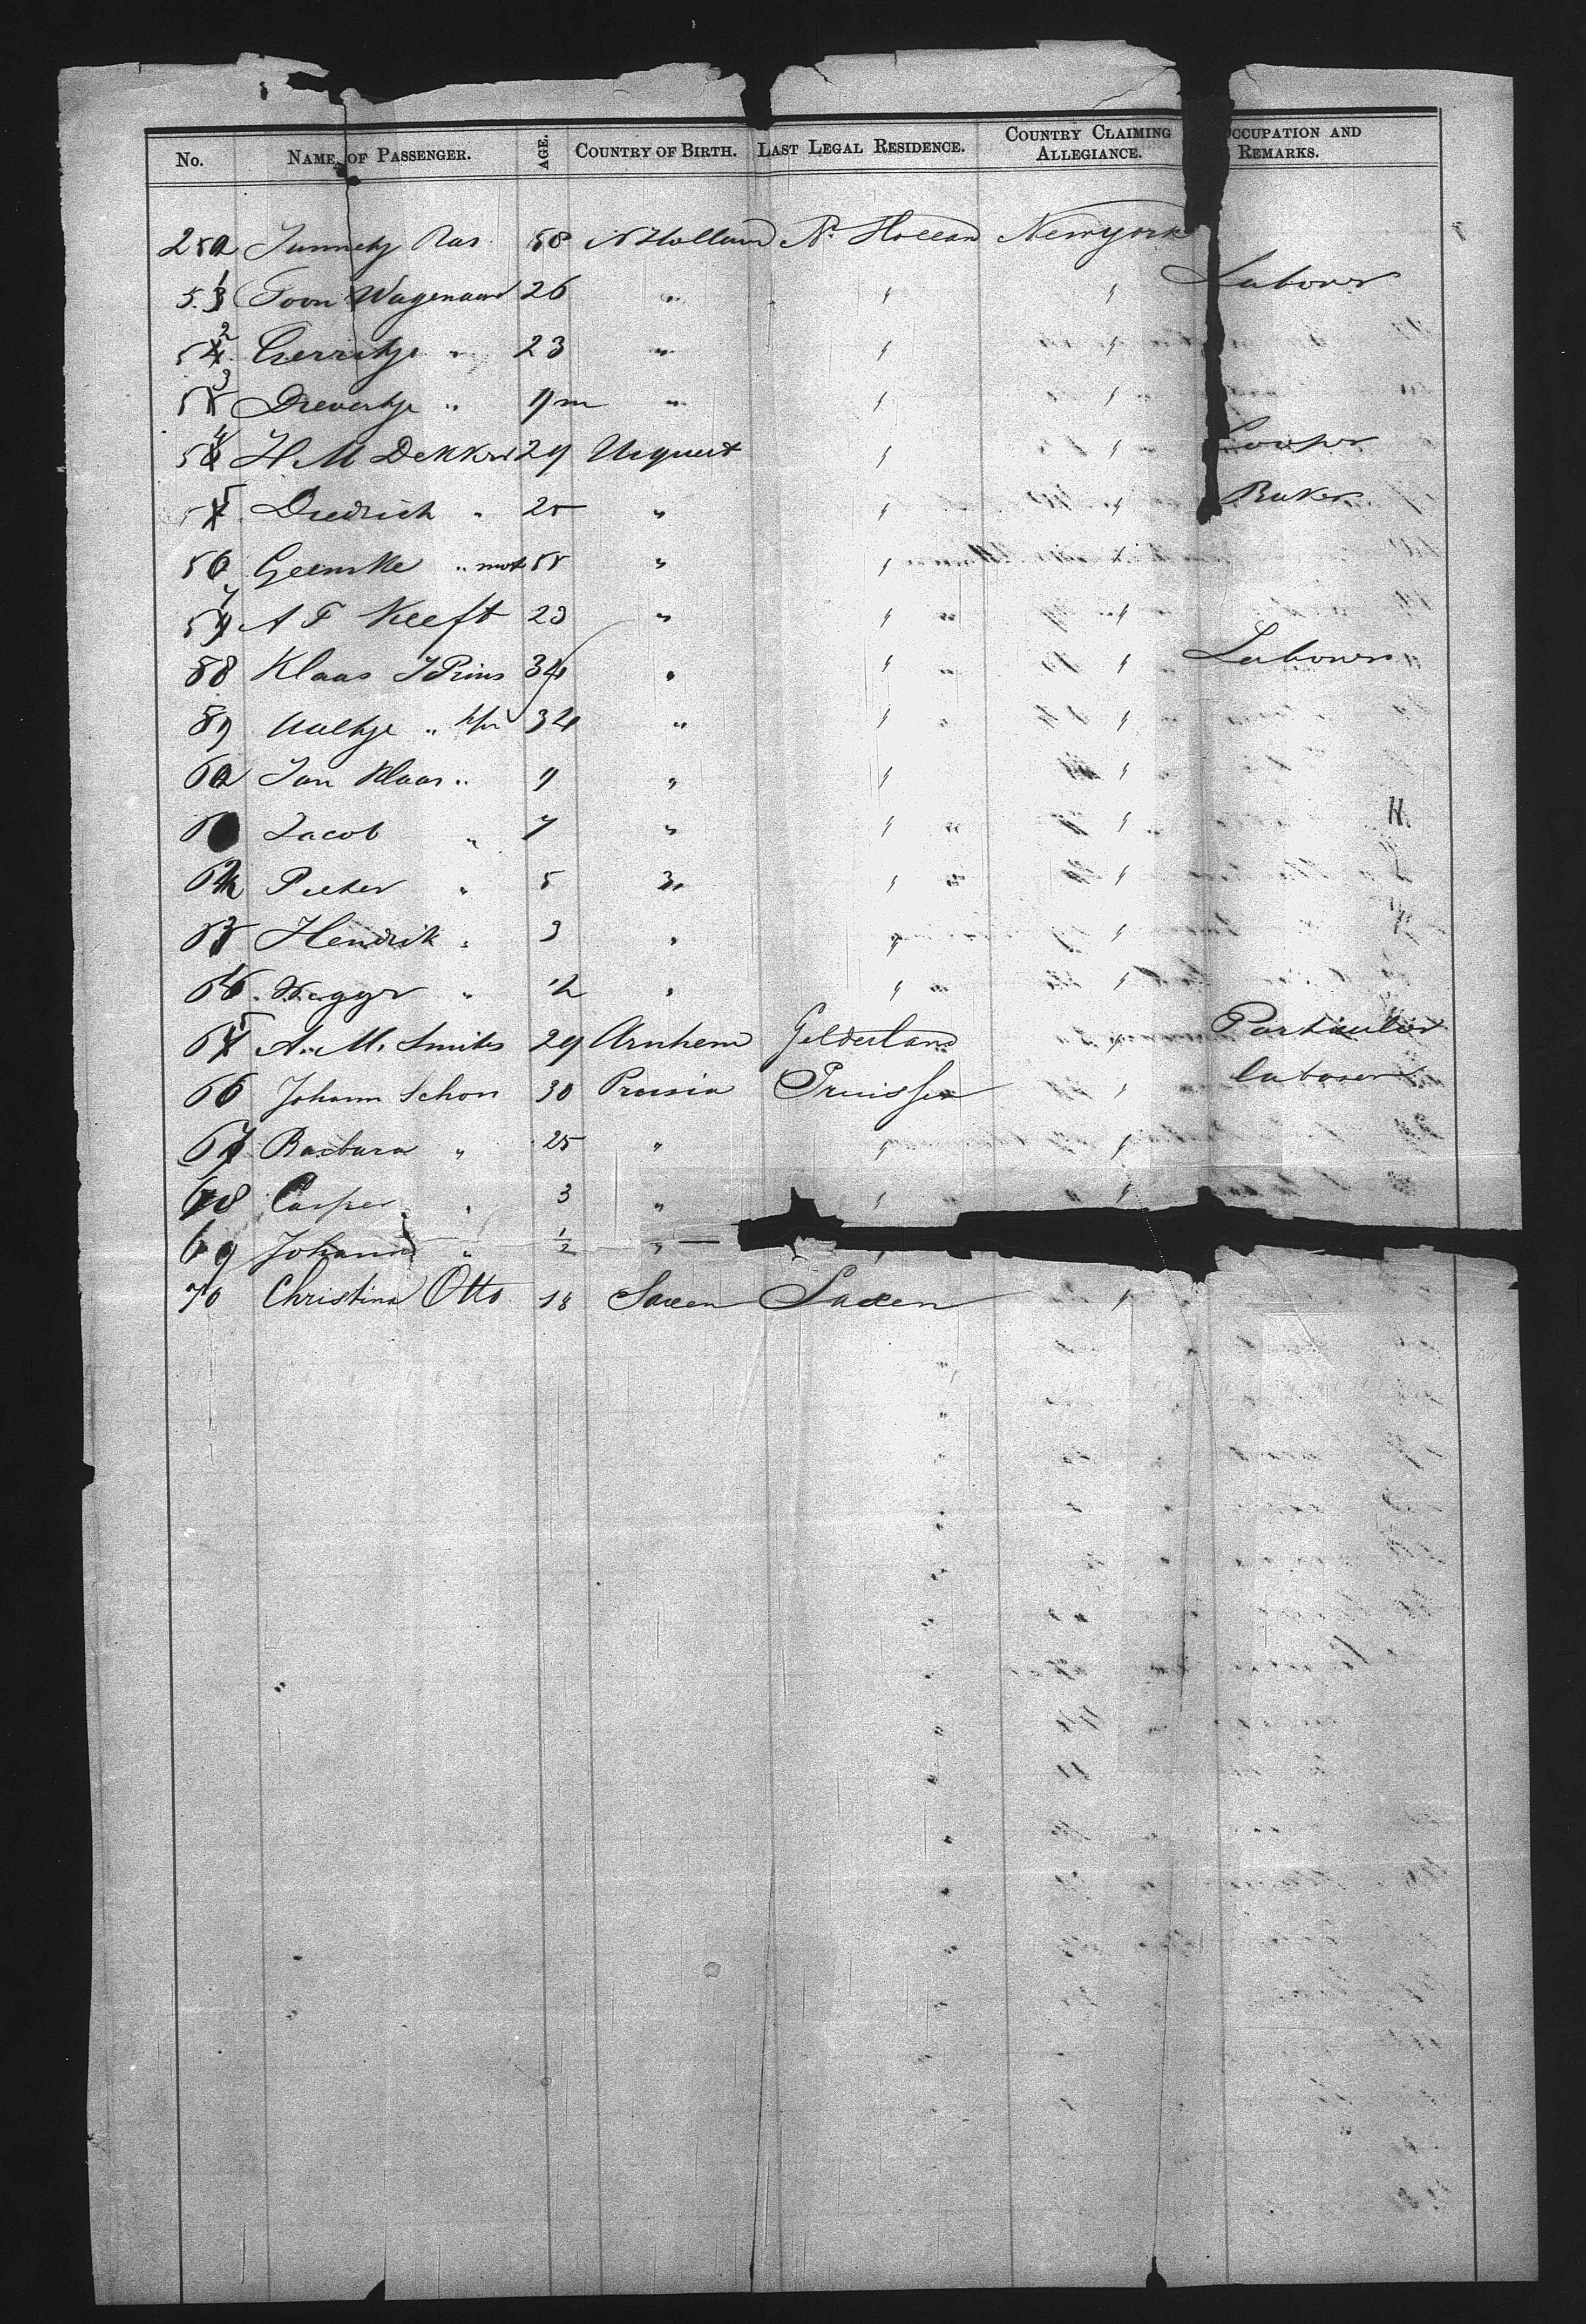 No. NAME OF PASSENGER. AGE. COUNTRY OF BIRTH. LAST LEGAL RESIDENCE. COUNTRY CLAIMING ALLEGIANCE. OCCUPATION AND REMARKS.
250 Ras 58 N Holland N. Holland Newyork
51 Toon Wagenaar 26 " " " Labourer
52 Gerritje " 23 " " "
53 Dieuwertje " 9m " " "
54 H M Dekker 29 " " Cooper
55 Diedrich " 25 " " " Baker
56 " 55 " "
57 A F Kleeft 23 " " "
58 Klaas J Prins 34 " " " Labourer
59 Aaltje " 34 " " "
60 Jan Klaas " 9 " " "
6 Jacob " 7 " " "
62 Pieter " 5 " " "
63 Hendrik " 3 " " "
64 " ½ " " "
65 A. M. Smits 29 Arnhem Gelderland " Particulier
66 Johann Schon 30 Prusia Pruissen " labourer
67 Barbara " 25 " " "
68 Casper " 3 " " "
69 Johann " ½ " "
70 Christina Otto 18 Saxen Saxen "